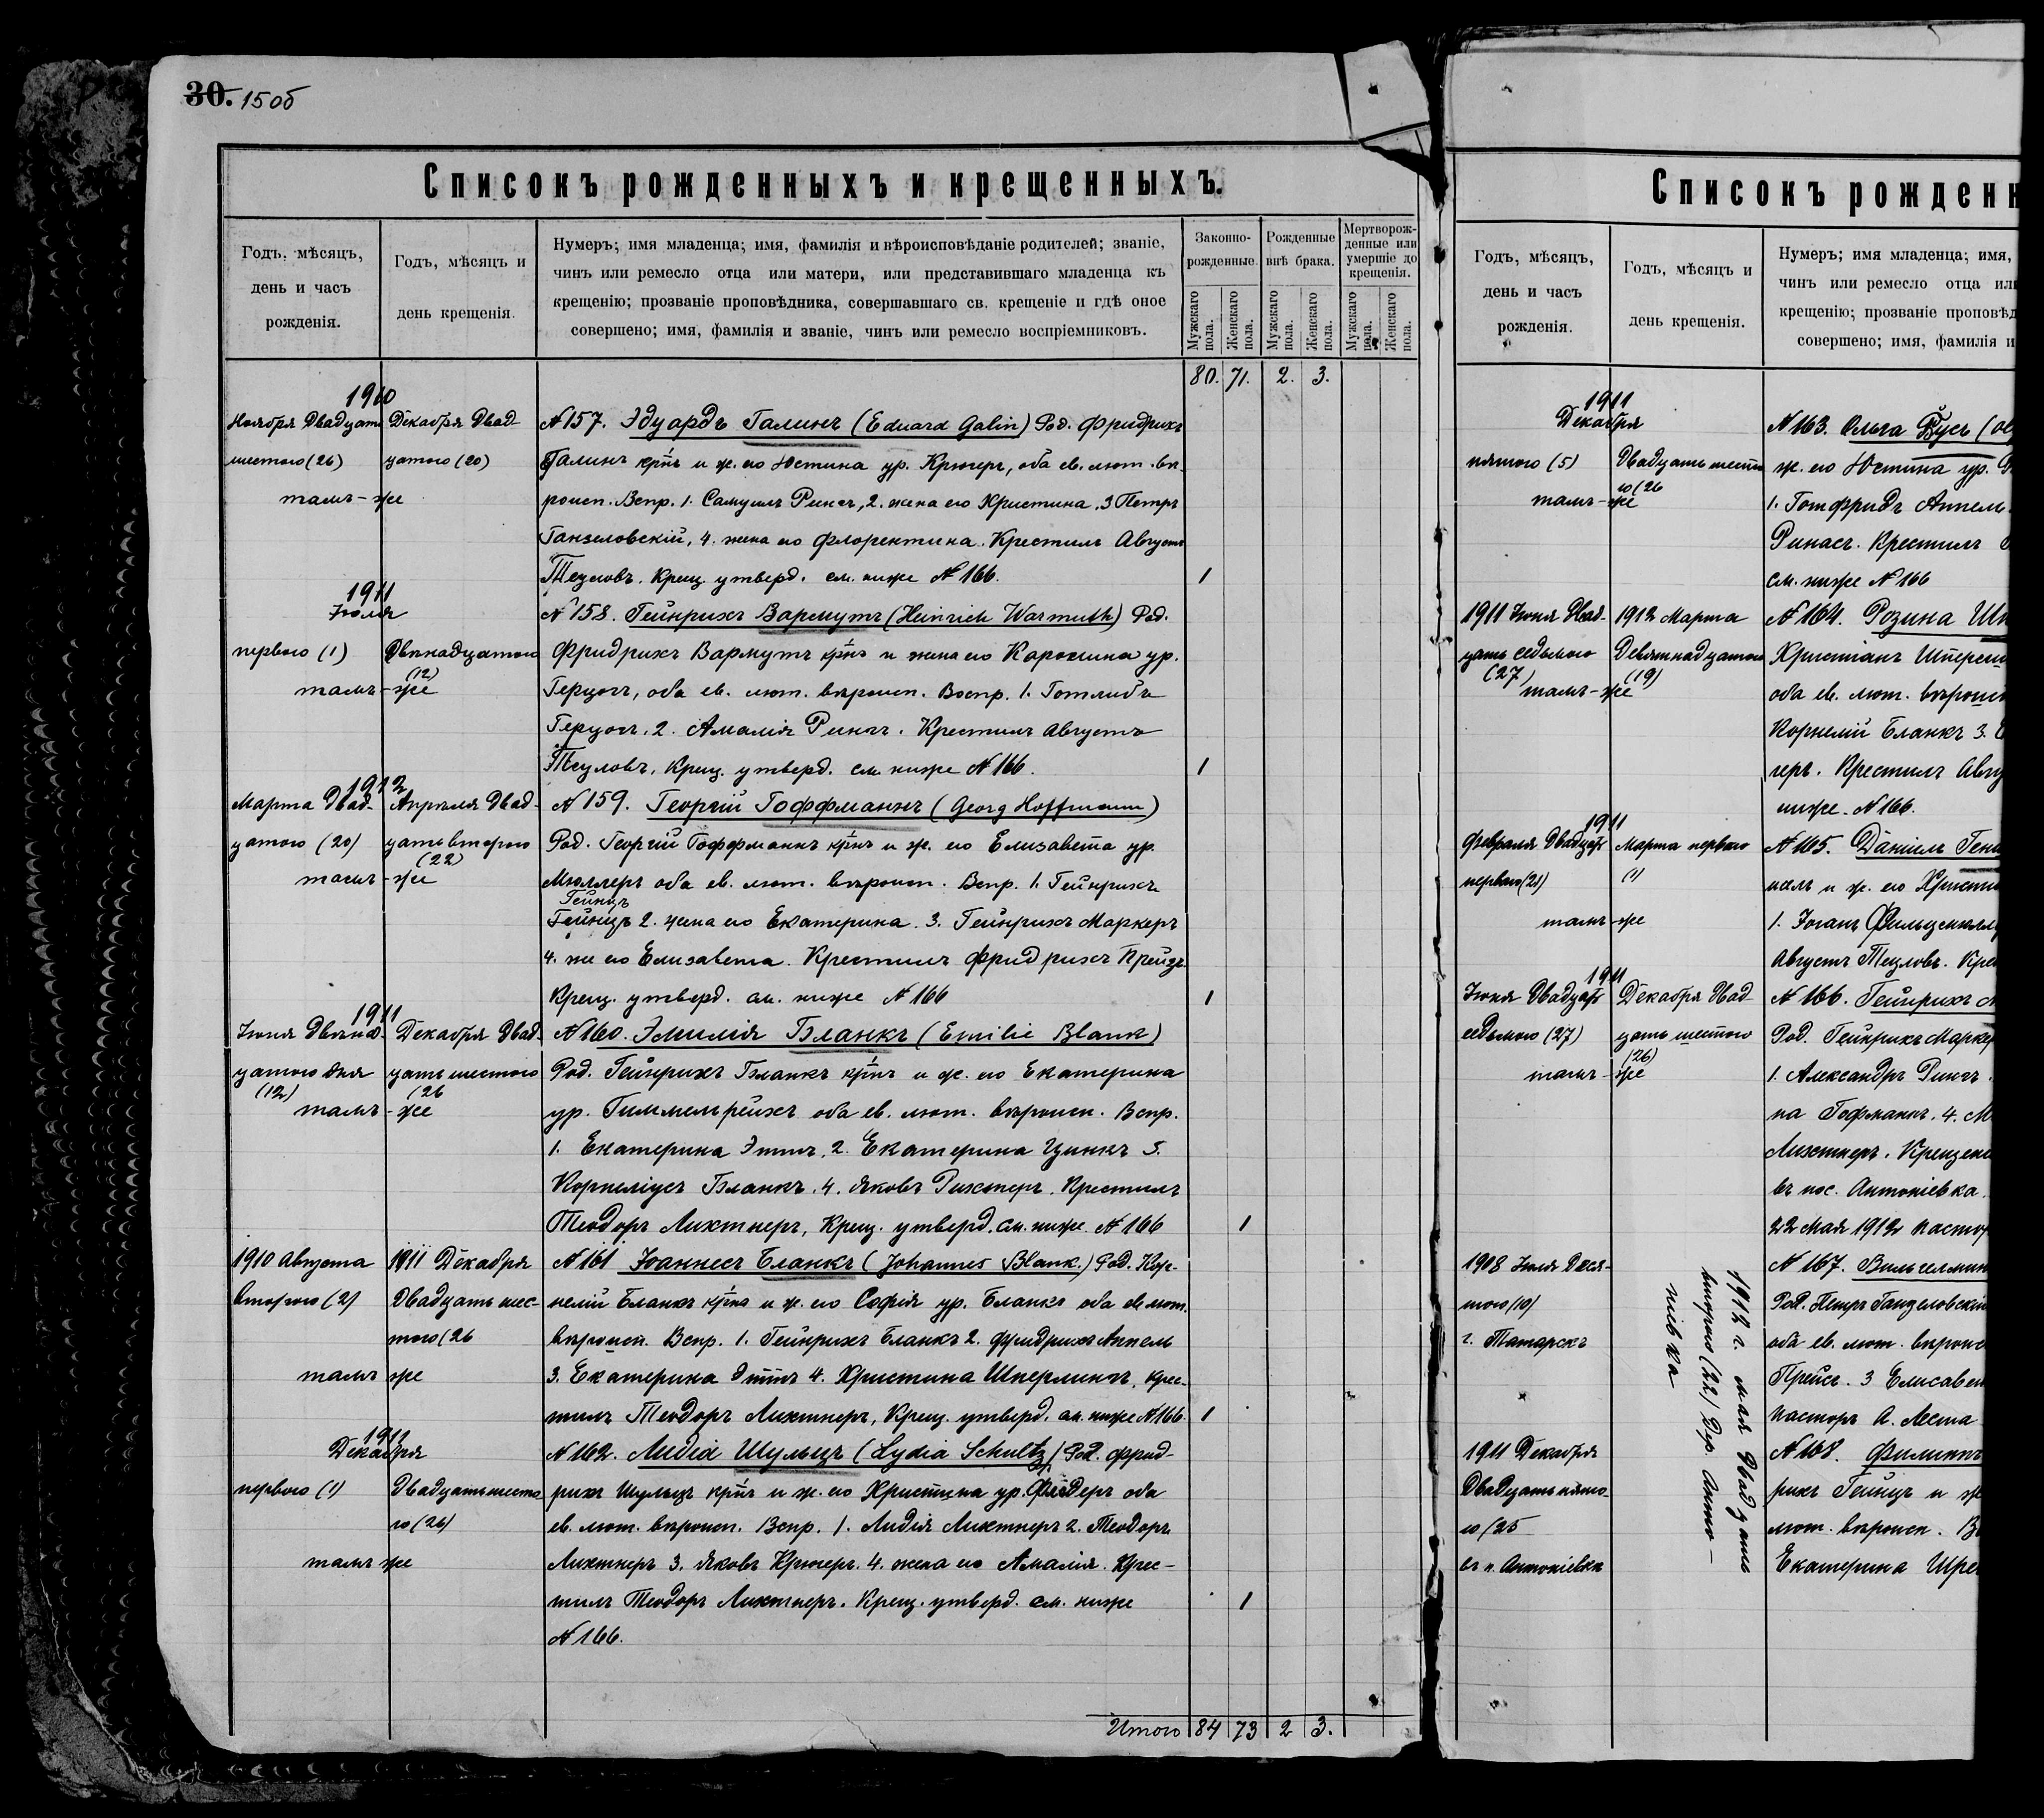 30. 15об
Списокъ рожденныхъ и крещенныхъ.
Годъ, мѣсяцъ,
день и часъ
рожденія.
Годъ, мѣсяцъ и
день крещенія.
Нумеръ; имя младенца; имя, фамилія и вѣроисповѣданіе родителей; званіе,
чинъ или ремесло отца или матери, или представившаго младенца къ
крещенію; прозваніе проповѣдника, совершавшаго св. крещеніе и гдѣ оное
совершено; имя, фамилія и званіе, чинъ или ремесло воспріемниковъ.
Законно-
рожденные.
Рожденные
внѣ брака.
Мертворож-
денные или
умершіе до
крещенія.
Мужскаго пола.
Женскаго пола.
Мужскаго пола.
Женскаго пола.
Мужскаго пола.
Женскаго пола.
80. 71. 2. 3.
1910
Ноября Двадцать
шестого (26)
Декабря Двад-
цатого (20)
тамъ-же
№ 157. Эдуардъ Галинъ (Eduard Galin) Род. Фридрихъ
Галинъ крнъ и ж. его Юстина ур. Крюгеръ, оба ев. лют. вѣ-
роисп. Вспр. 1. Самуилъ Рингъ, 2. жена его Кристина, 3 Петръ
Ганзеловскій, 4. жена его Флорентина. Крестилъ Августъ
Тецловъ. Крещ. утверд. см. ниже № 166. 1
1911
Іюля
первого (1)
Двѣнадцатого
(12)
тамъ-же
№ 158. Гейнрихъ Вармутъ (Heinrich Warmuth) Род.
Фридрихъ Вармутъ крнъ и жена его Каролина ур.
Герцогъ, оба ев. лют. вѣроисп. Воспр. 1. Готлибъ
Герцогъ, 2. Амалія Рингъ. Крестилъ Августъ
Тецловъ, Крещ. утверд. см. ниже № 166. 1
1912
Марта Двад-
цатого (20)
Апрѣля Двад-
цать второго
(22)
тамъ-же
№ 159. Георгій Гоффманнъ (Georg Hoffmann)
Род. Георгій Гоффманнъ крнъ и ж. его Елизавета ур.
Мюллеръ оба ев. лют. вѣроисп. Вспр. 1. Гейнрихъ
Гейнцъ
Гейнцъ 2. жена его Екатерина. 3. Гейнрихъ Маркеръ
4. же его Елизавета. Крестилъ Фридрихъ Прейзъ.
Крещ. утверд. см. ниже № 166 1
1911
Іюня Двѣнад-
цатого дня
(12)
Декабря Двад-
цать шестого
(26
тамъ-же
№ 160. Эмилія Бланкъ (Emilie Blank)
Род. Гейнрихъ Бланкъ крнъ и ж. его Екатерина
ур. Гиммельрейхъ оба ев. лют. вѣроисп. Вспр.
1. Екатерина Эттъ, 2. Екатерина Цинкъ 3.
Корнеліусъ Бланкъ, 4. Яковъ Рихтеръ. Крестилъ
Теодоръ Лихтнеръ, Крещ. утверд. см. ниже № 166 1
1910 Августа
второго (2)
1911 Декабря
Двадцать шес-
того (26
тамъ же
№ 161 Іоаннесъ Бланкъ (Johannes Blank.) Род. Кор-
нелій Бланкъ крнъ и ж. его Софія ур. Бланкъ оба ев лют.
вѣроисп. Вспр. 1. Гейнрихъ Бланкъ 2. Фридрихъ Аппель
3. Екатерина Эттъ 4. Христина Шперлингъ, Крес-
тилъ Теодоръ Лихтнеръ, Крещ. утверд. см. ниже № 166. 1
1911
Декабря
первого (1)
Двадцать шесто
го (26)
тамъ же
№ 162. Лидіа Шульцъ (Lydia Schultz) Род. Фрид-
рихъ Шульцъ крнъ и ж. его Христина ур. оба
ев. лют. вѣроисп. Вспр. 1. Лидія Лихтнеръ 2. Теодоръ
Лихтнеръ 3. Яковъ Крюгеръ. 4. жена его Амалія. Крес-
тилъ Теодоръ Лихтнеръ. Крещ. утверд. см. ниже 1
№ 166.
Итого 84 73 2 3.
Списокъ рожденн
Годъ, мѣсяцъ,
день и часъ
рожденія.
Годъ, мѣсяцъ и
день крещенія.
Нумеръ; имя младенца; имя,
чинъ или ремесло отца или
крещенію; прозваніе проповѣд
совершено; имя, фамилія и
1911
Декабря
пятого (5)
Двадцать шесто
го (26
тамъ-же
№ 163. Ольга Бусъ (Ol
ж. его Юстина ур.
1. Готфридъ Аппель
Ринасъ. Крестилъ
см. ниже № 166
1911 Іюня Двад-
цать седьмого
(27)
1912 Марта
Девятнадцатого
(19)
тамъ-же
№ 164. Розина Шп
Христіанъ Шперли
оба ев. лют. вѣроисп
Корнелій Бланкъ 3.
геръ. Крестилъ Авгу
ниже. № 166.
1911
Февраля Двадцать
первого (21)
Марта первого
(1)
тамъ-же
№ 165. Даніелъ Гени
нелъ и ж. его Христи
1. Іоганъ
Августъ Тецловъ. Кре
1911
Іюня Двадцать
седьмого (27)
Декабря Двад-
цать шестого
(26)
тамъ-же
№ 166. Гейнрихъ М
Род. Гейнрихъ Маркер
1. Александръ Рингъ.
на Гофманнъ. 4. М
Лихтнеръ. Крещено
въ пос. Антоніевка.
22 Мая 1912 Пастор
1908 Іюля Деся-
того (10)
г. Татарскъ
1912 г. Мая Двадцать
второго (22) Дер. Анто-
ніевка
№ 167. Вильгелмин
Род. Петръ Ганзеловскій
оба ев. лют. вѣроис
Прейсъ. 3 Елисавет
Пасторъ А. Леста
1911 Декабря
Двадцать пято-
го (25
въ п. Антоніевкѣ
№ 168. Филиппъ
рихъ Гейнцъ и ж
лют. вѣроисп. В
Екатерина Шре